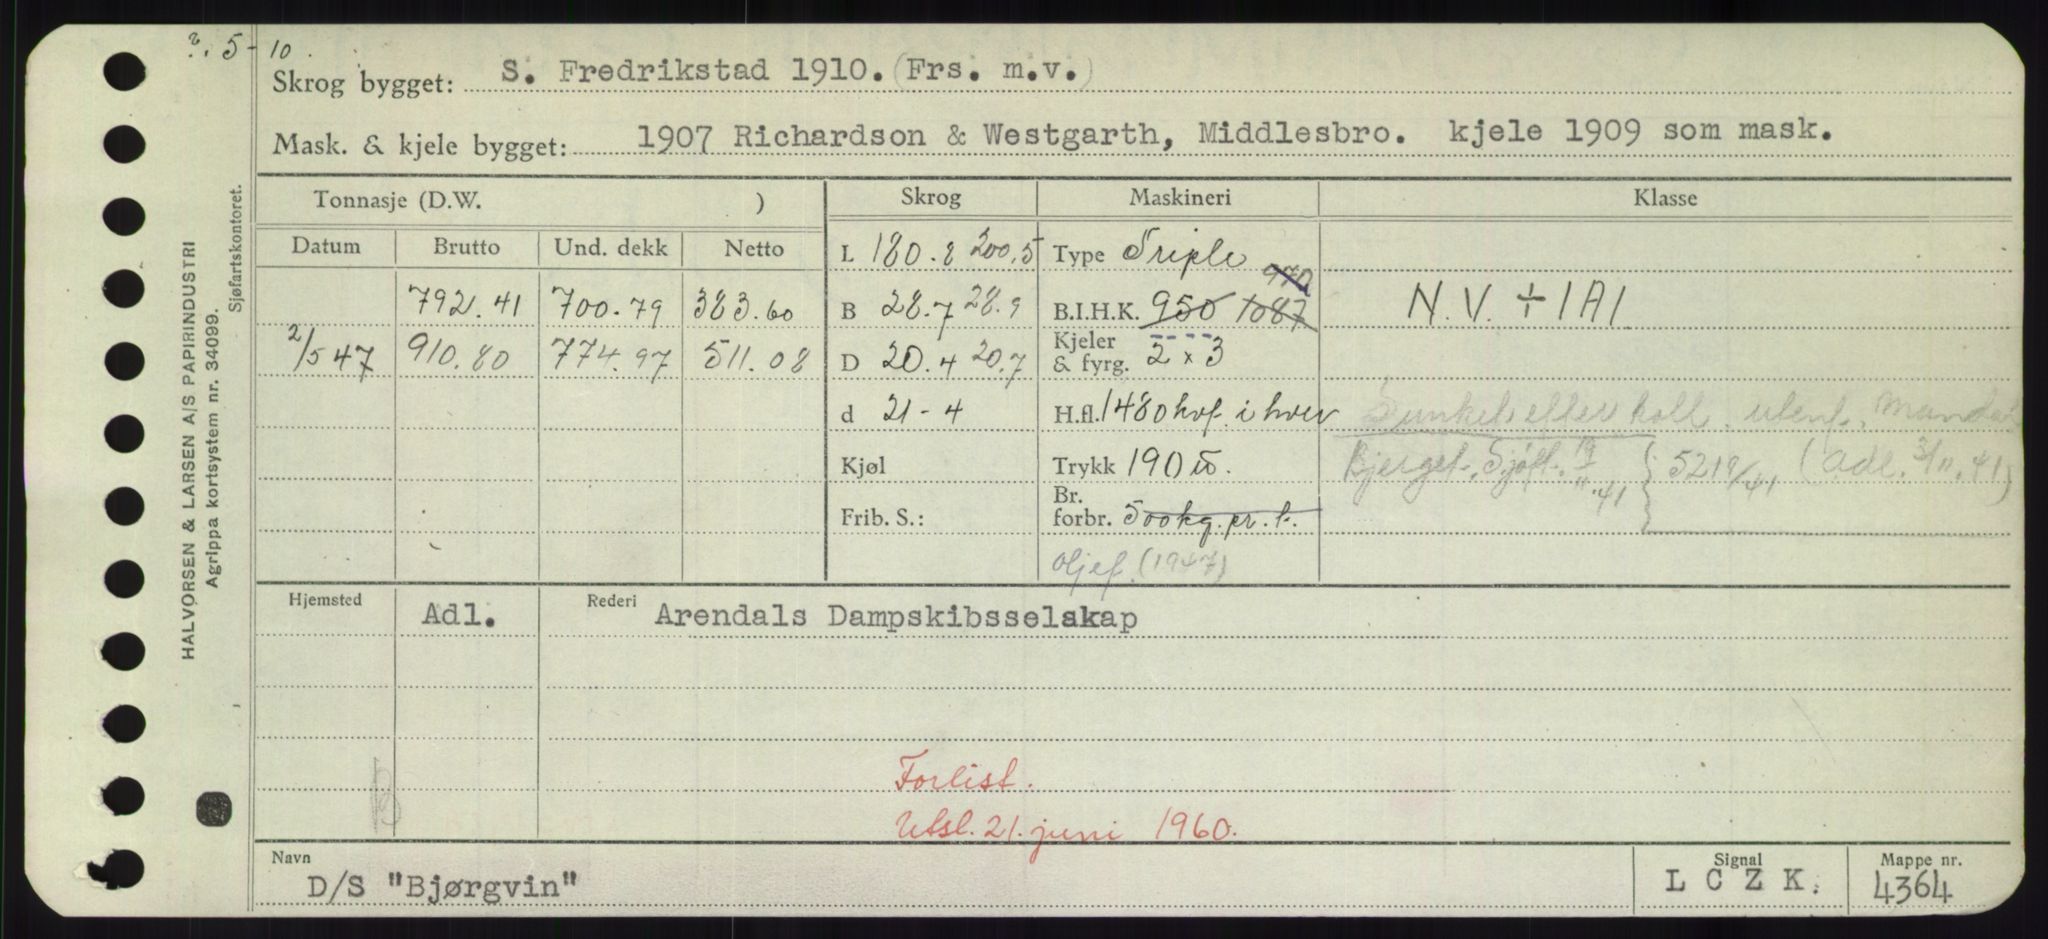 2. 5 - 10.
Skrog bygget: S. Fredrikstad 1910. (Frs. m.v.)
Mask. & kjele bygget: 1907 Richardson & Westgarth, Middlesbro. kjele 1909 som mask.
Tonnasje (D.W. ) Skrog Maskineri Klasse
Datum Brutto Und. dekk Netto L 180.8 200.5 Type Triple
970
792.41 700.79 383.60 B 28.7 28.9 B.I.H.K. 950 1087 N.V. ÷ 1A1
2/5 47 910.80 774.97 511.08 D 20.4 20.7 Kjeler & fyrg. 2 x 3
d 21-4 H.fl. 1480 kvf. i hver Sunket efter koll. utenf. Mandal
Kjøl Trykk 190 lb. Bjerget. Sjøft. 19/11.41 } 5219/41 (Adl. 3/11.41)
Frib. S.: Br. forbr. 500 kg. pr. t.
oljef. (1947)
Hjemsted Adl. Rederi Arendals Dampskibsselskap
B
Forlist.
Utsl. 21. juni 1960.
Navn D/S "Bjørgvin" Signal L C Z K. Mappe nr. 4364
HALVORSEN & LARSEN A/S PAPIRINDUSTRI
Agrippa kortsystem nr. 34099.
Sjøfartskontoret.